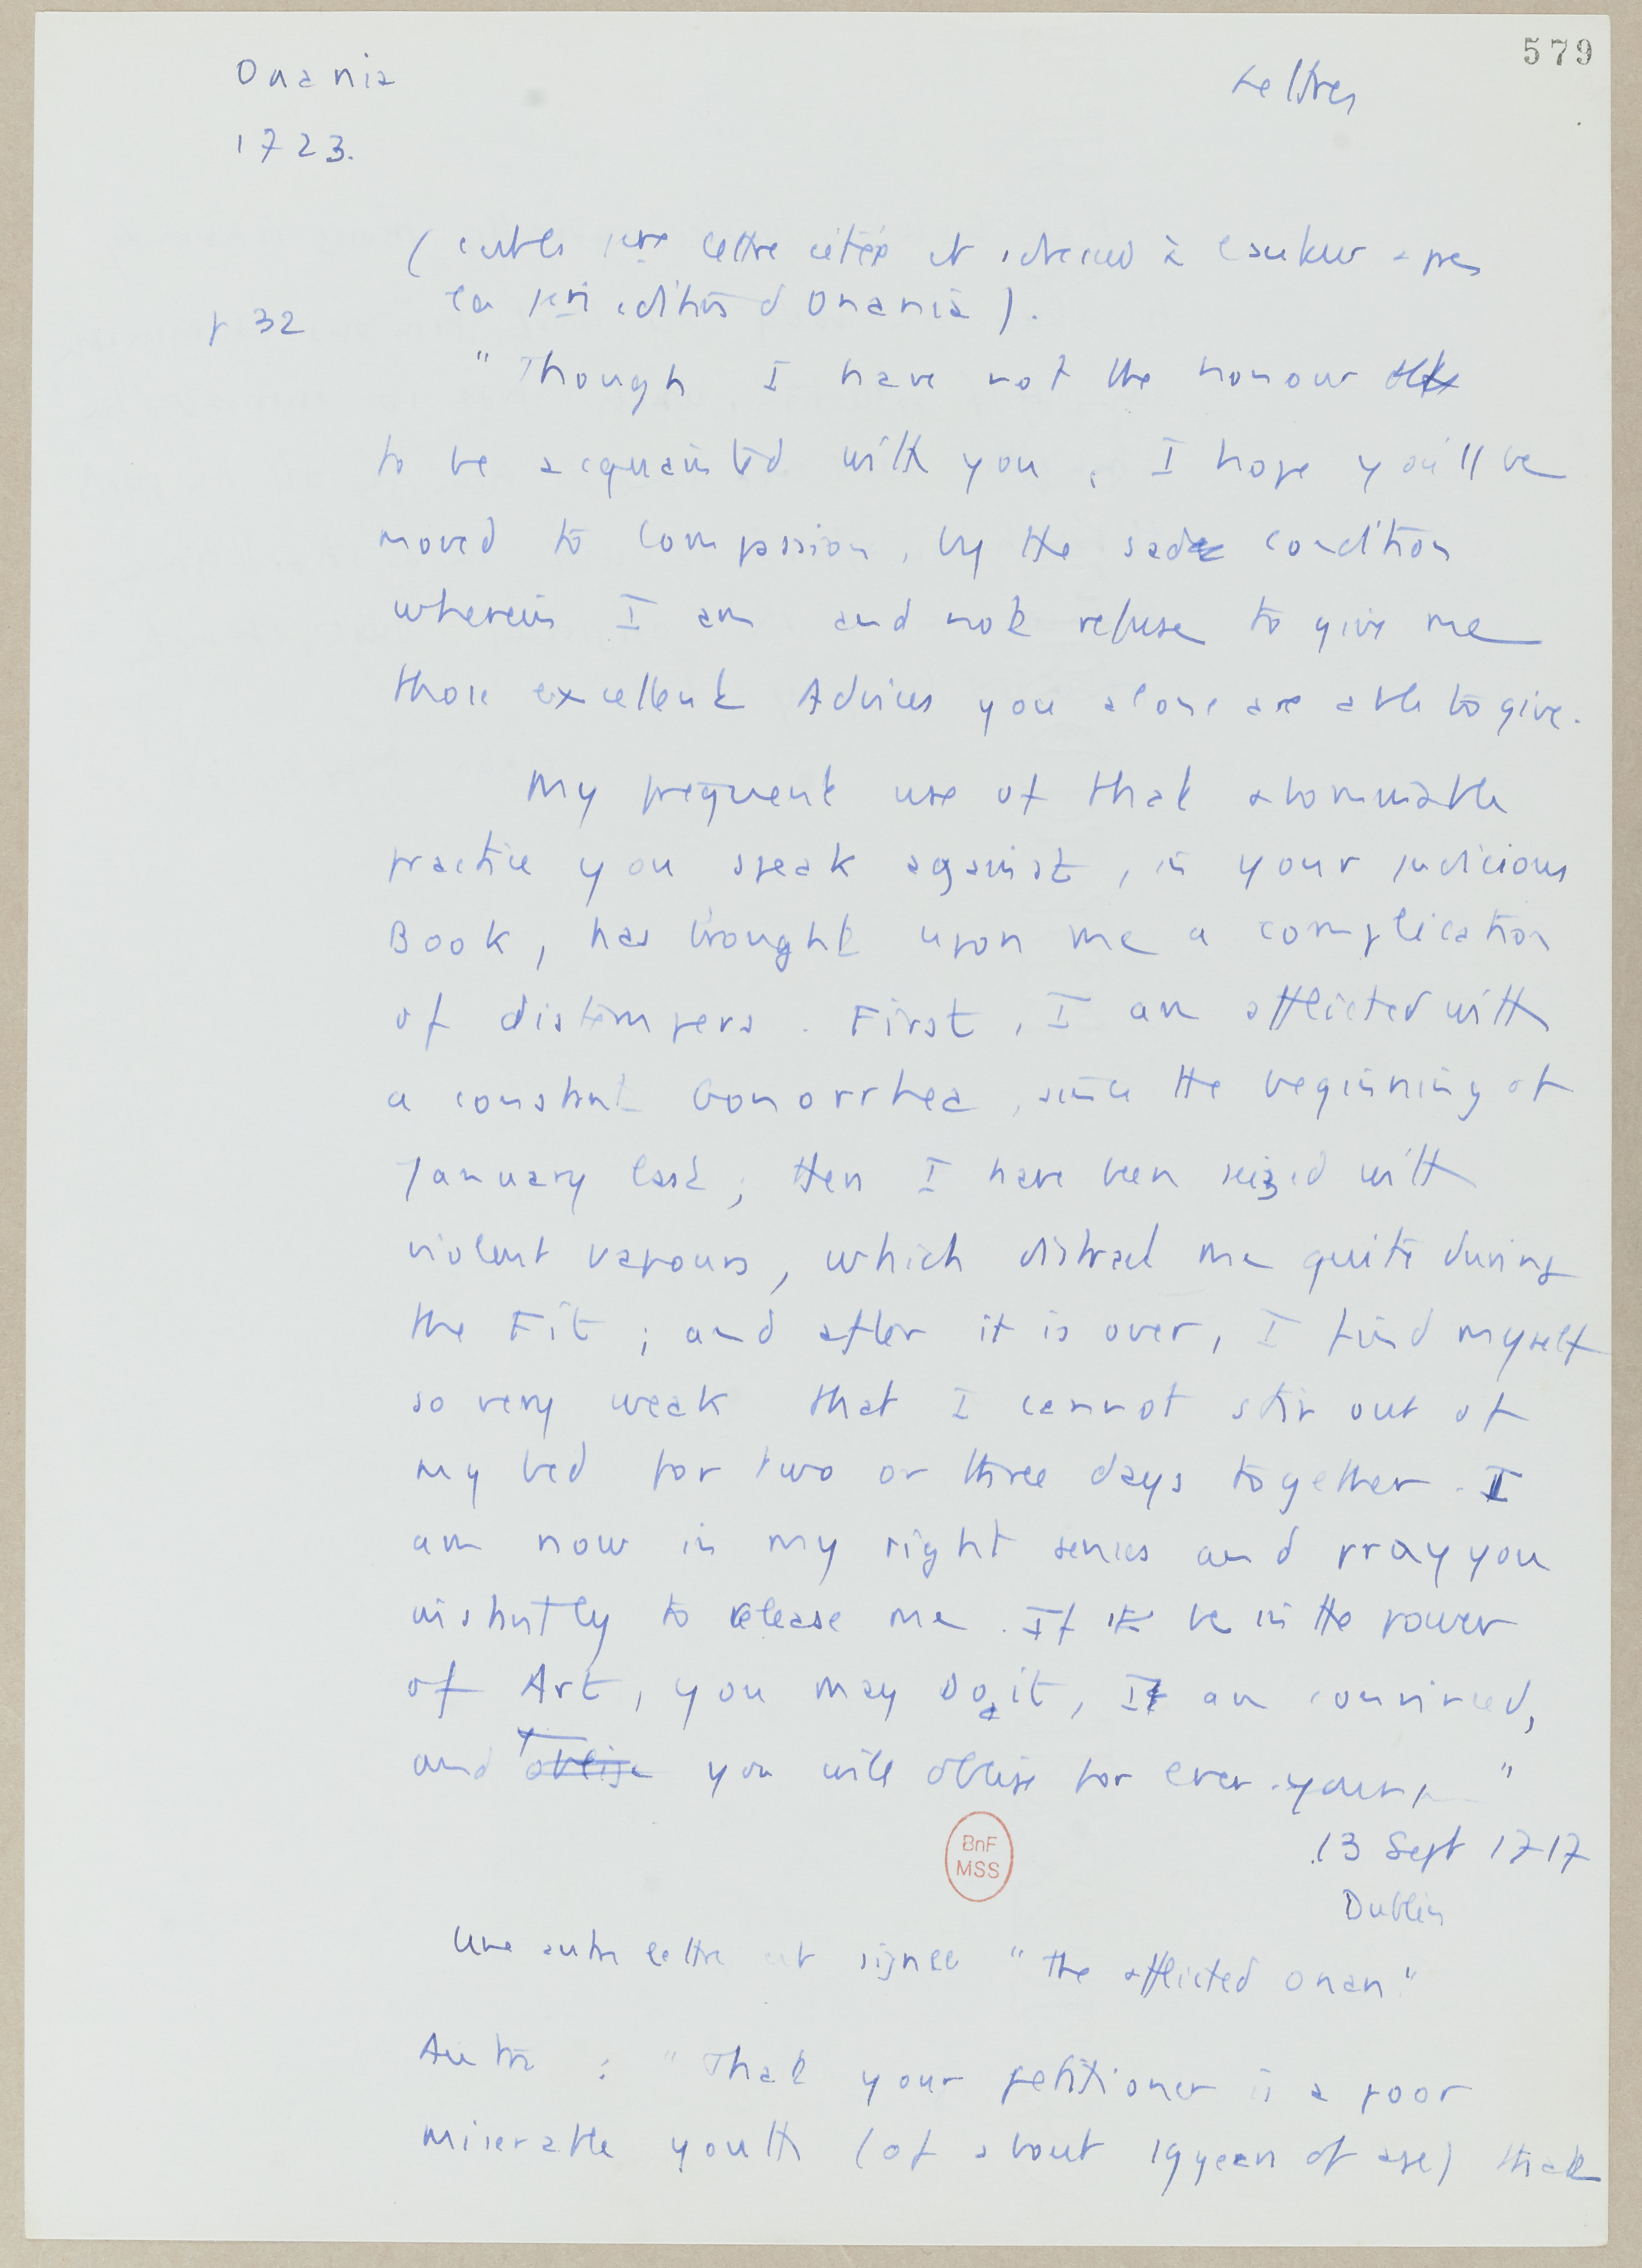 579
Onania
Lettres
1723.
( lettre citée et adressée à l'auteur après
la édition d'Onania ).
p 32
"Though I have not the honour
to be acquainted with you, I hope you'll be
moved to compassion, by the sad condition
wherein I am and not refuse to give me
those excellent Advices you alone are able to give.
My frequent use of that abominable
practice you speak against, in your judicious
Book, has brought upon me a complication
of distempers. First, I am afflicted with
a constant Gonorrhea, since the beginning of
January last; then I have been seized with
violent vapours, which distract me quite during
the Fit; and after it is over, I find myself
so very weak that I cannot stir out of
my bed for two or three days together. I
am now in my right senses and pray you
instantly to release me. If it be in the power
of Art, you may do it, I am convinced,
and oblige you will oblige for ever your, "
BnF
MSS
13 Sept 1717
Dublin
Une autre lettre est signée "the afflicted onan"
Autre : "That your petitioner is a poor
miserable youth (of about 19 years of age) that